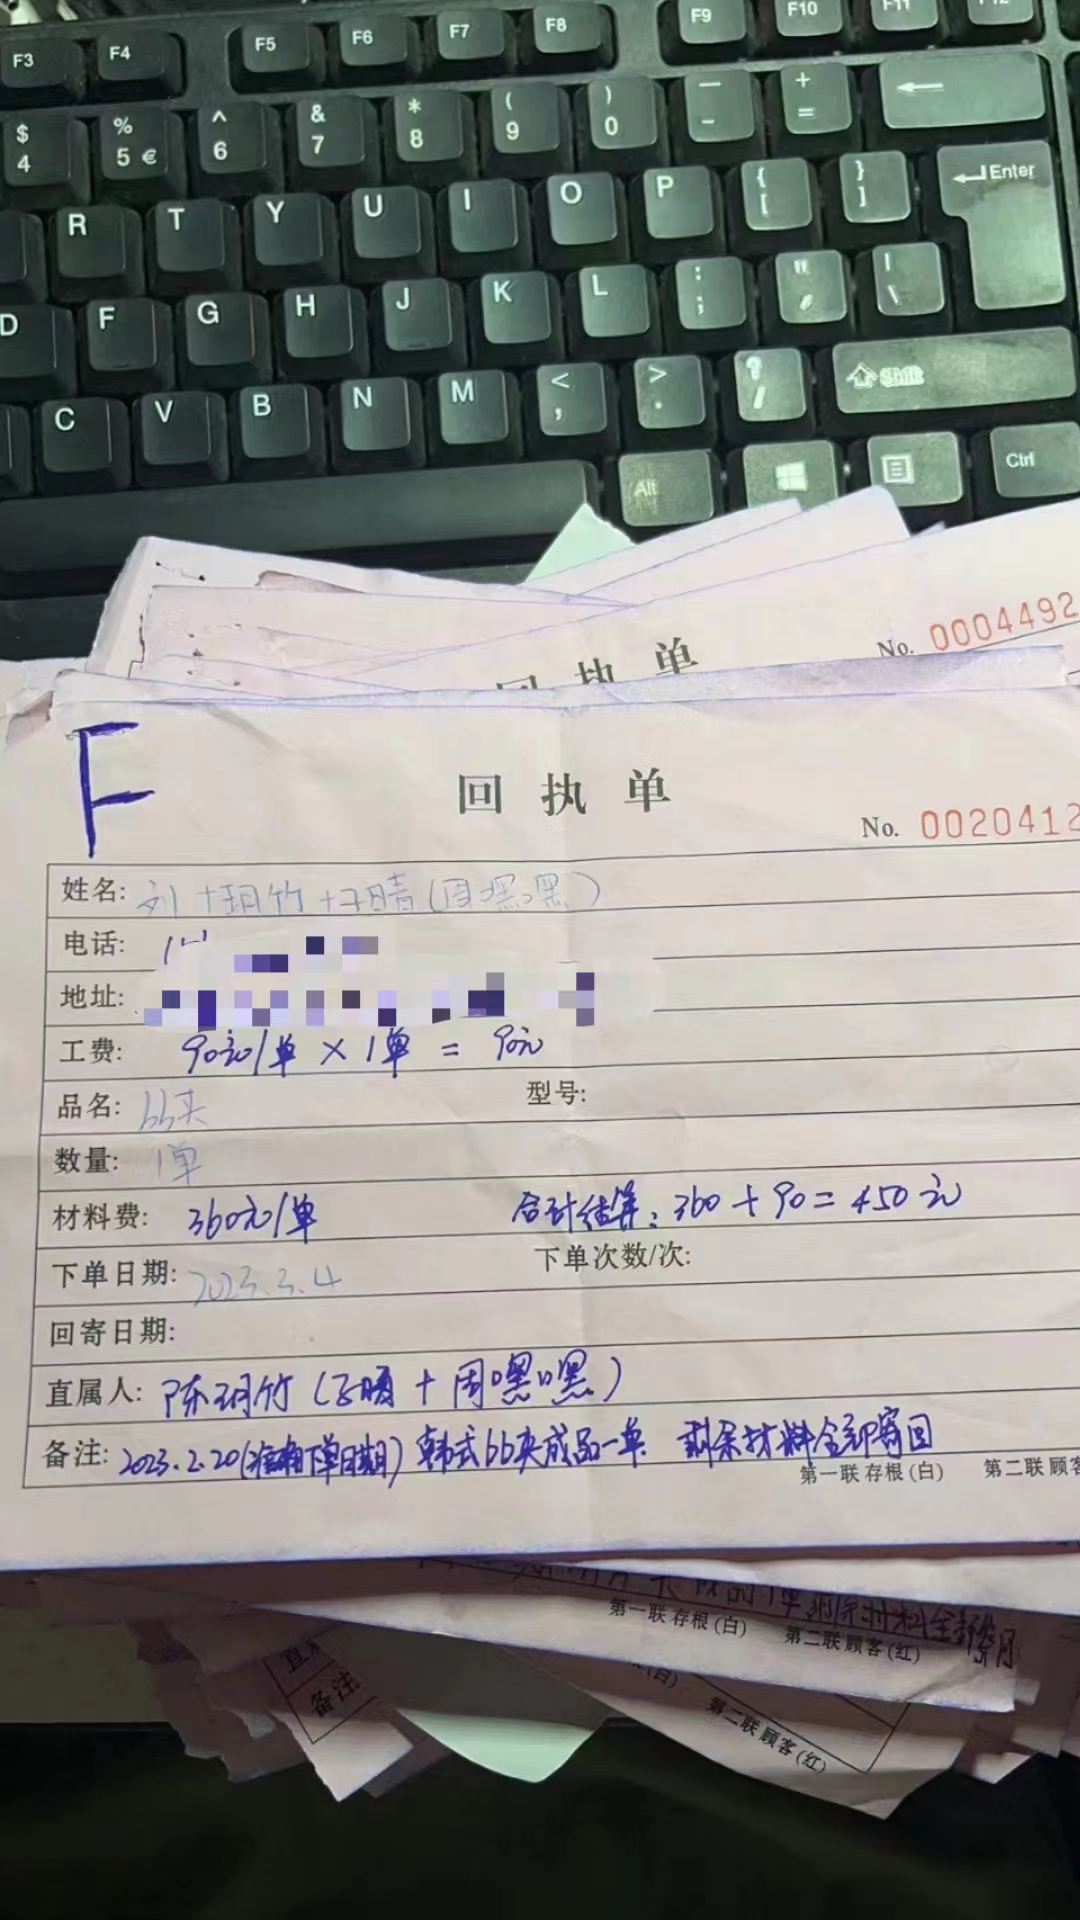 F3 F4 F5 F6 F7 F8 F9 F10 F11 F12
$ 4 % 5 € ^ 6 & 7 * 8 ( 9 ) 0 — - + =
R T Y U I O P { [ } ] Enter
D F G H J K L : ; " | \
C V B N M < , > . ? / Shift
Alt Ctrl
回执单
No. 0004492
F
回执单
No. 0020412
姓名: 刘+玥竹+子晴(周嘿嘿)
电话: 1
地址:
工费: 90元/单 × 1单 = 90元
品名: bb夹 型号:
数量: 1单
材料费: 360元/单 合计结算: 360 + 90 = 450元
下单日期: 2023.3.4 下单次数/次:
回寄日期:
直属人: 陈玥竹(子晴+周嘿嘿)
备注: 2023.2.20(准确下单日期) 韩式bb夹成品一单 剩余材料全部寄回
第一联 存根(白) 第二联 顾客
剩余材料全部寄回
第一联 存根(白) 第二联 顾客(红)
直属
备注
(白) 第二联 顾客(红)